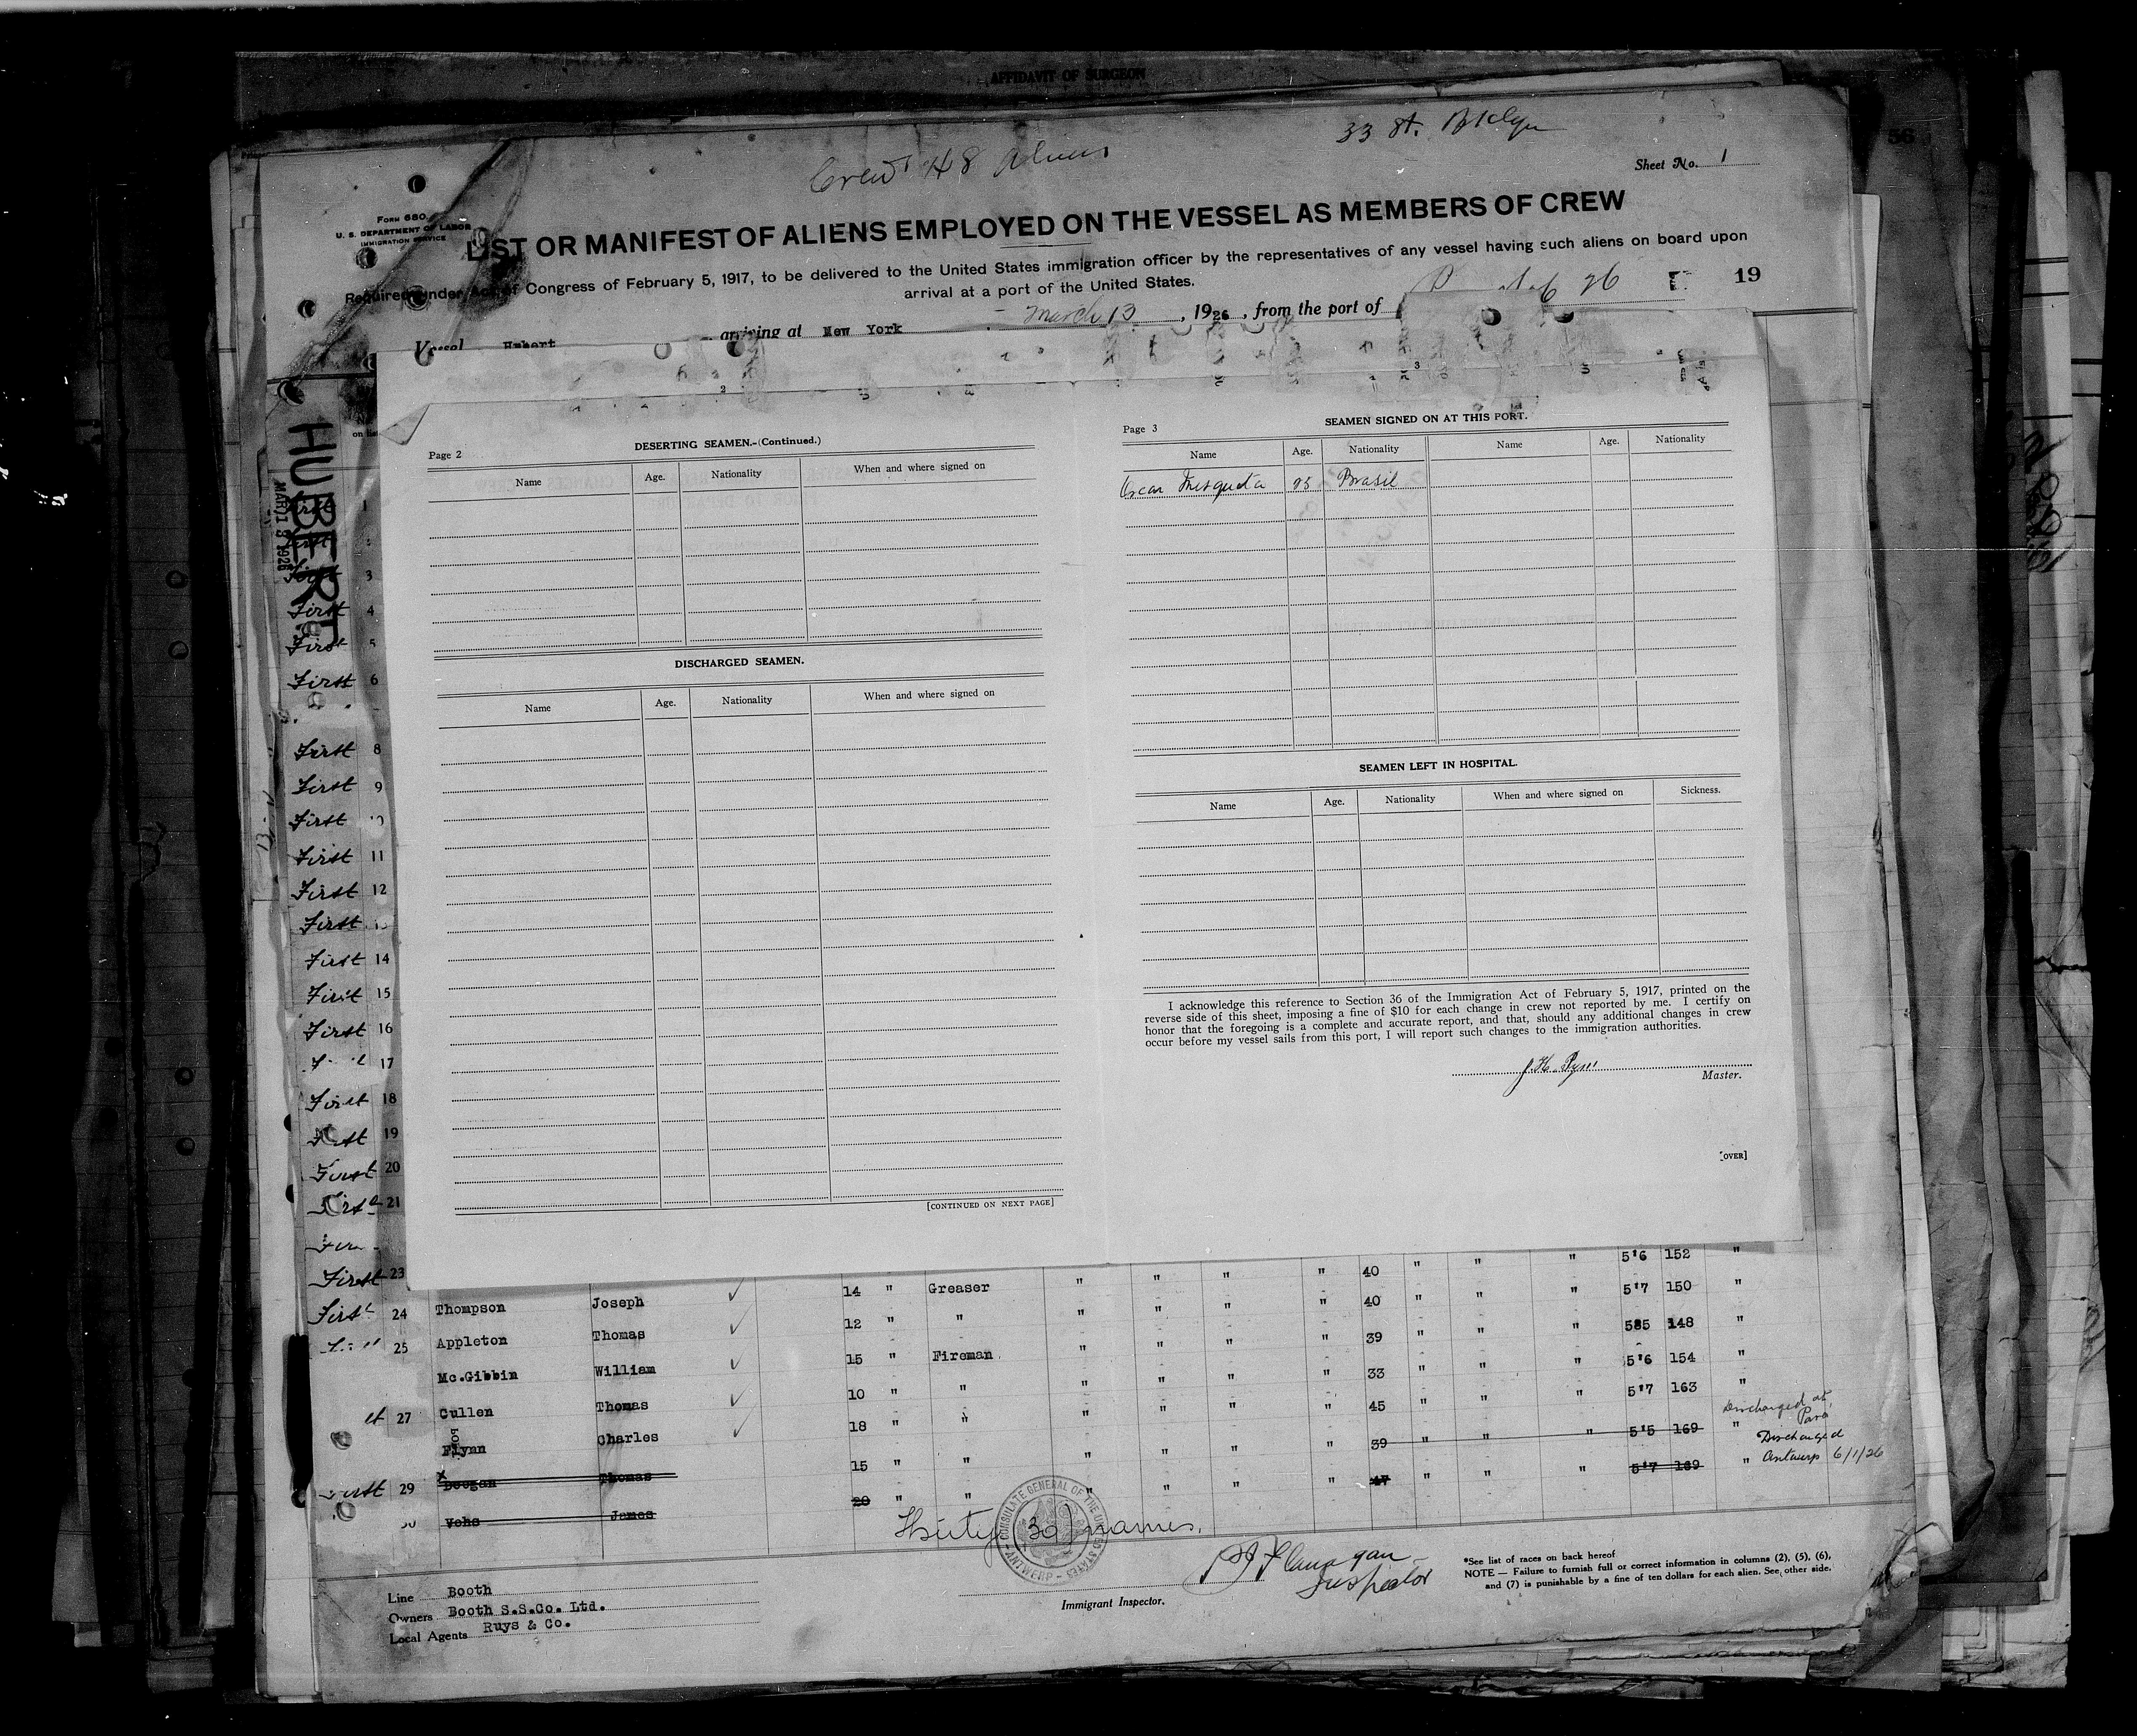 AFFIDAVIT OF SURGEON
56
33 St. Bklyn
Crew 48 Aliens
Sheet No. 1
FORM 680
U. S. DEPARTMENT OF LABOR
IMMIGRATION SERVICE
LIST OR MANIFEST OF ALIENS EMPLOYED ON THE VESSEL AS MEMBERS OF CREW
Required under Act of Congress of February 5, 1917, to be delivered to the United States immigration officer by the representatives of any vessel having such aliens on board upon
arrival at a port of the United States.
Vessel Hubert arriving at New York March 13, 1926, from the port of
26 19
HUBERT
MAR 13 1926
Page 2
DESERTING SEAMEN.-(Continued.)
Name Age. Nationality When and where signed on
DISCHARGED SEAMEN.
Name Age. Nationality When and where signed on
[CONTINUED ON NEXT PAGE]
Page 3
SEAMEN SIGNED ON AT THIS PORT.
Name Age. Nationality Name Age. Nationality
Oscar Mesquita Brasil
SEAMEN LEFT IN HOSPITAL.
Name Age. Nationality When and where signed on Sickness.
I acknowledge this reference to Section 36 of the Immigration Act of February 5, 1917, printed on the
reverse side of this sheet, imposing a fine of $10 for each change in crew not reported by me. I certify on
honor that the foregoing is a complete and accurate report, and that, should any additional changes in crew
occur before my vessel sails from this port, I will report such changes to the immigration authorities.
J. H. Pym
Master.
[OVER]
First 1
First
First 3
First 4
First 5
First 6
First 8
First 9
First 10
First 11
First 12
First
First 14
First 15
First 16
17
First 18
First 19
First 20
First 21
First 23
5'6 152 "
First 24 Thompson Joseph 14 " Greaser " " " " 40 " " " 5'7 150 "
25 Appleton Thomas 12 " " " " " " 40 " " " 585 148 "
Mc.Gibbin William 15 " Fireman " " " " 39 " " " 5'6 154 "
27 Cullen Thomas 10 " " " " " " 33 " " " 5'7 163 "
Flynn Charles 18 " " " " " " 45 " " " 5'5 169 " Discharged at Para
First 29 Deegan Thomas 15 " " " " " " 39 " " " 5'7 169 " Discharged Antwerp 6/1/26
30 Vohs James 20 " " " " " " 47 " " "
Thirty (30) names.
CONSULATE GENERAL OF THE UNITED STATES - ANTWERP -
Flanagan
Inspector
Immigrant Inspector.
Line Booth
Owners Booth S.S.Co. Ltd.
Local Agents Ruys & Co.
*See list of races on back hereof
NOTE — Failure to furnish full or correct information in columns (2), (5), (6),
and (7) is punishable by a fine of ten dollars for each alien. See other side.